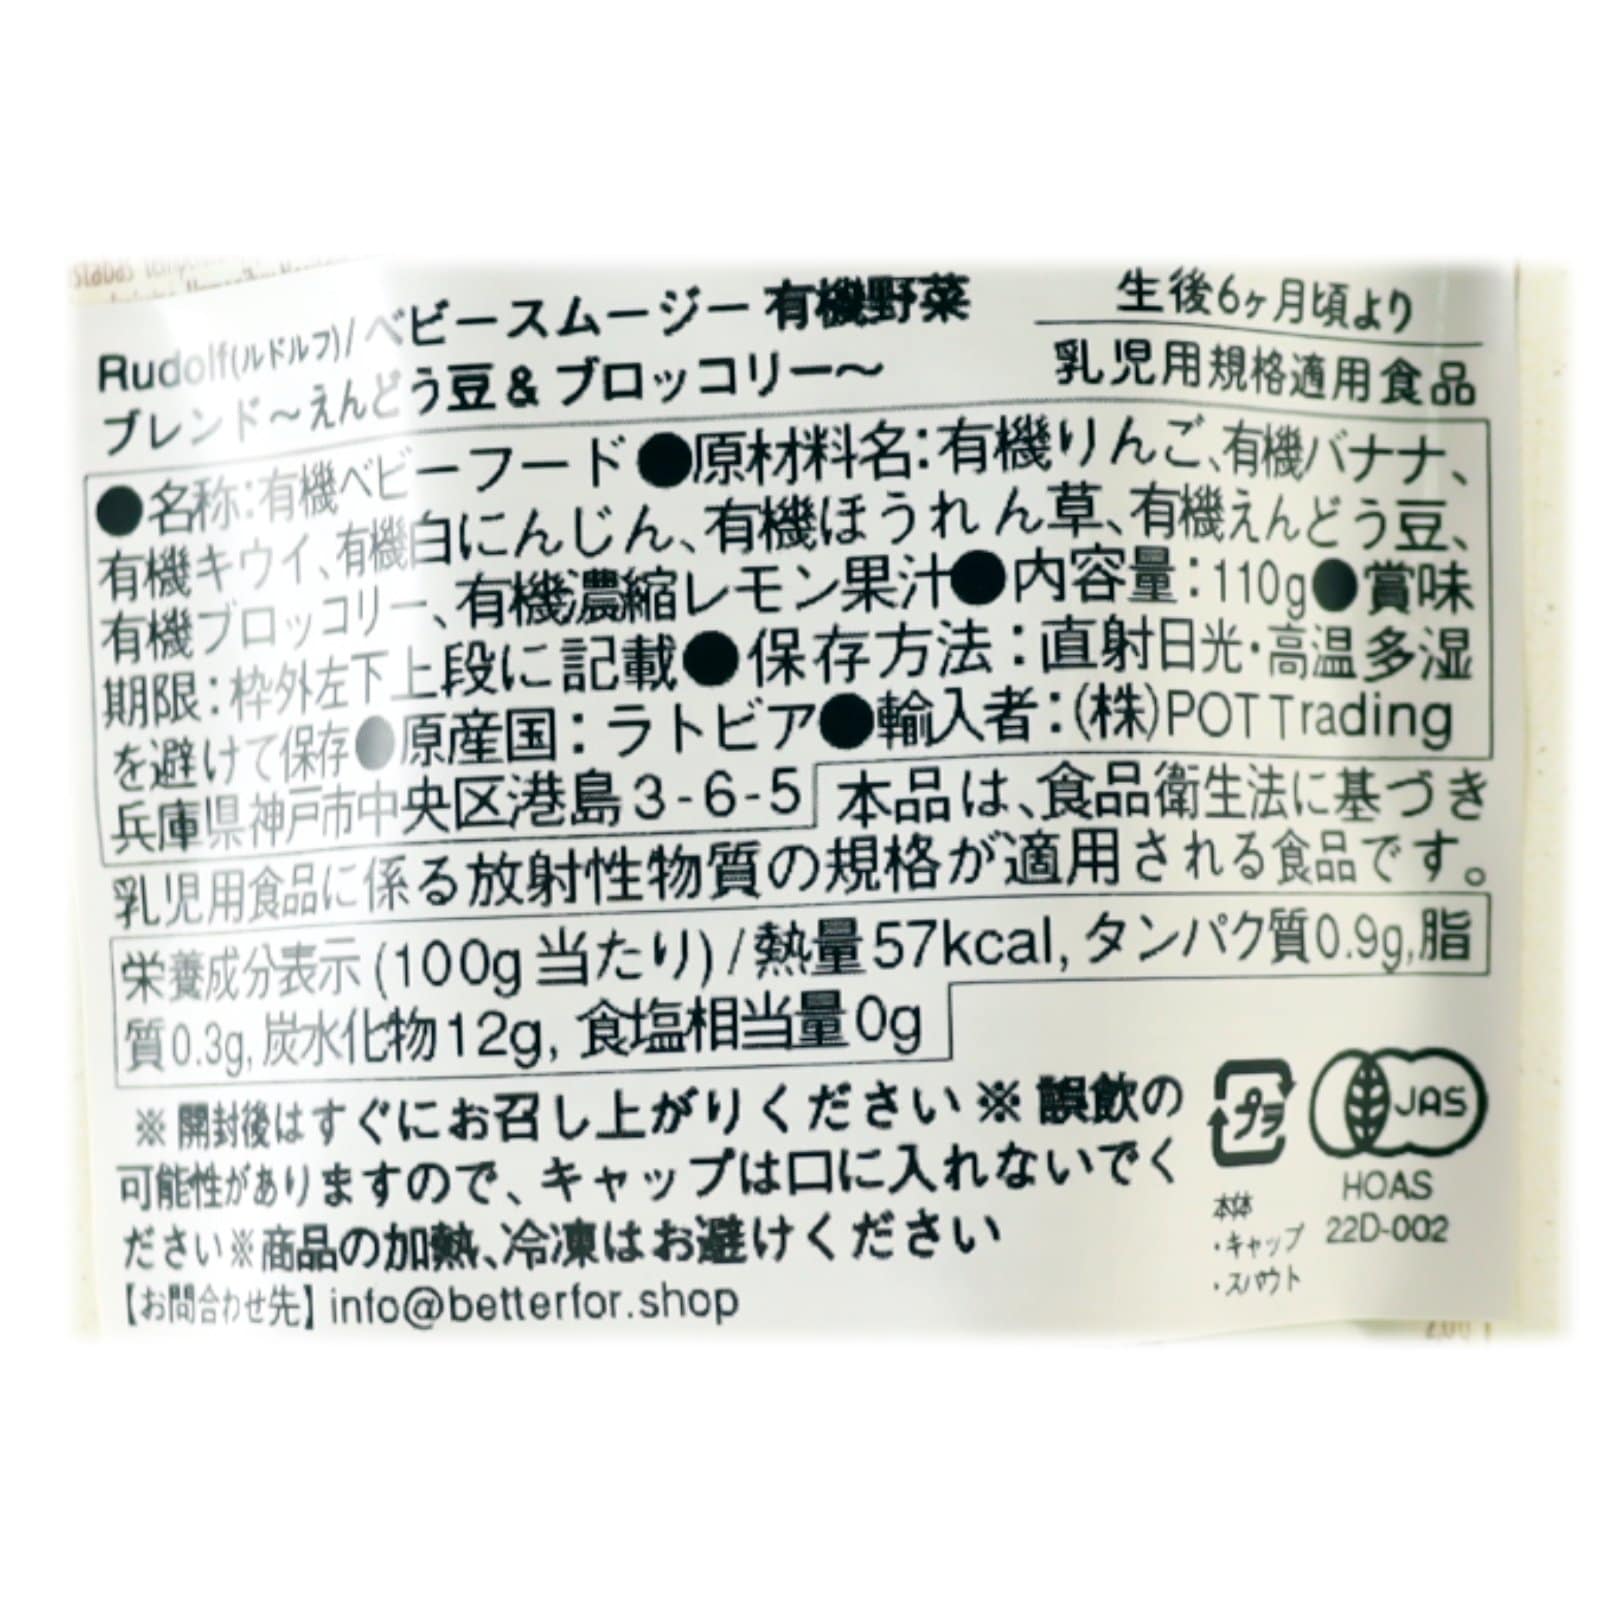 Rudolf(ルドルフ)/ベビースムージー 有機野菜
ブレンド～えんどう豆&ブロッコリー～
生後6ヶ月頃より
乳児用規格適用食品
●名称:有機ベビーフード●原材料名:有機りんご、有機バナナ、
有機キウイ、有機白にんじん、有機ほうれん草、有機えんどう豆、
有機ブロッコリー、有機濃縮レモン果汁●内容量:110g●賞味
期限:枠外左下上段に記載●保存方法:直射日光・高温多湿
を避けて保存●原産国:ラトビア●輸入者:(株)POT Trading
兵庫県神戸市中央区港島3-6-5
本品は、食品衛生法に基づき
乳児用食品に係る放射性物質の規格が適用される食品です。
栄養成分表示(100g当たり)/熱量57kcal,タンパク質0.9g,脂
質0.3g,炭水化物12g,食塩相当量0g
※開封後はすぐにお召し上がりください※誤飲の
可能性がありますので、キャップは口に入れないでく
ださい※商品の加熱、冷凍はお避けください
【お問合わせ先】info@betterfor.shop
プラ
本体
・キャップ
・スパウト
JAS
HOAS
22D-002